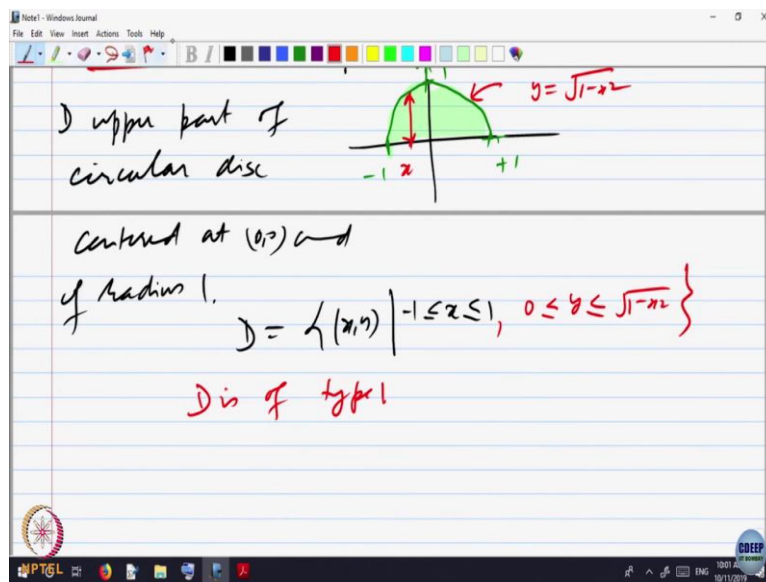 Note1 - Windows Journal
File Edit View Insert Actions Tools Help
B I
1
y = √1-x²
D upper part of
circular disc
-1 x +1
centered at (0,0) and
of radius 1.
D = {(x,y) | -1 ≤ x ≤ 1, 0 ≤ y ≤ √1-x² }
D is of type 1
NPTEL
CDEEP
IIT BOMBAY
ENG
10:01 A
10/11/2019